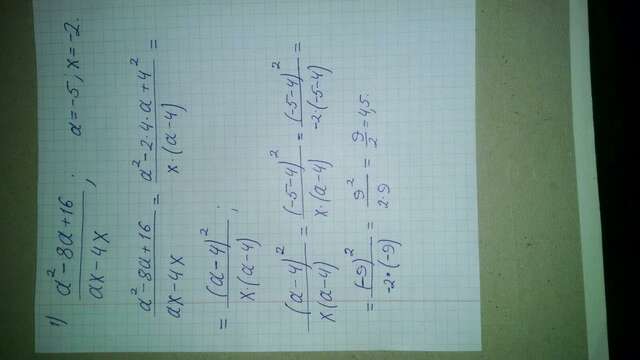 1) (a² - 8a + 16)/(ax - 4x) ; a = -5; x = -2.
(a² - 8a + 16)/(ax - 4x) = (a² - 2·4·a + 4²)/(x·(a - 4)) =
= (a - 4)²/(x·(a - 4)) ;
(a - 4)²/(x(a - 4)) = (-5 - 4)²/(x·(a - 4)) = (-5 - 4)²/(-2(-5 - 4)) =
= (-9)²/(-2·(-9)) = 9²/(2·9) = 9/2 = 4,5.